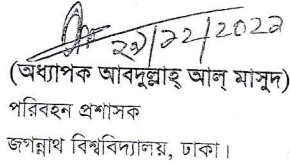 ২১/১১/২০২১
(অধ্যাপক আবদুল্লাহ্ আল্ মাসুদ)
পরিবহন প্রশাসক
জগন্নাথ বিশ্ববিদ্যালয়, ঢাকা।